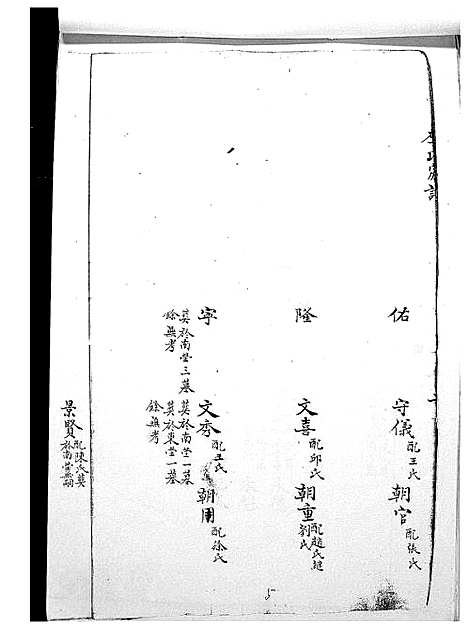 佑 守儀 配王氏 朝官 配張氏
隆 文喜 配邱氏 朝重 配趙氏趙劉氏
字 文秀 配王氏 朝用 配徐氏
莫於南塋三墓 莫於南塋一墓
餘無考 莫於東塋一墓
餘無考
景賢 配陳氏莫於南塋
5